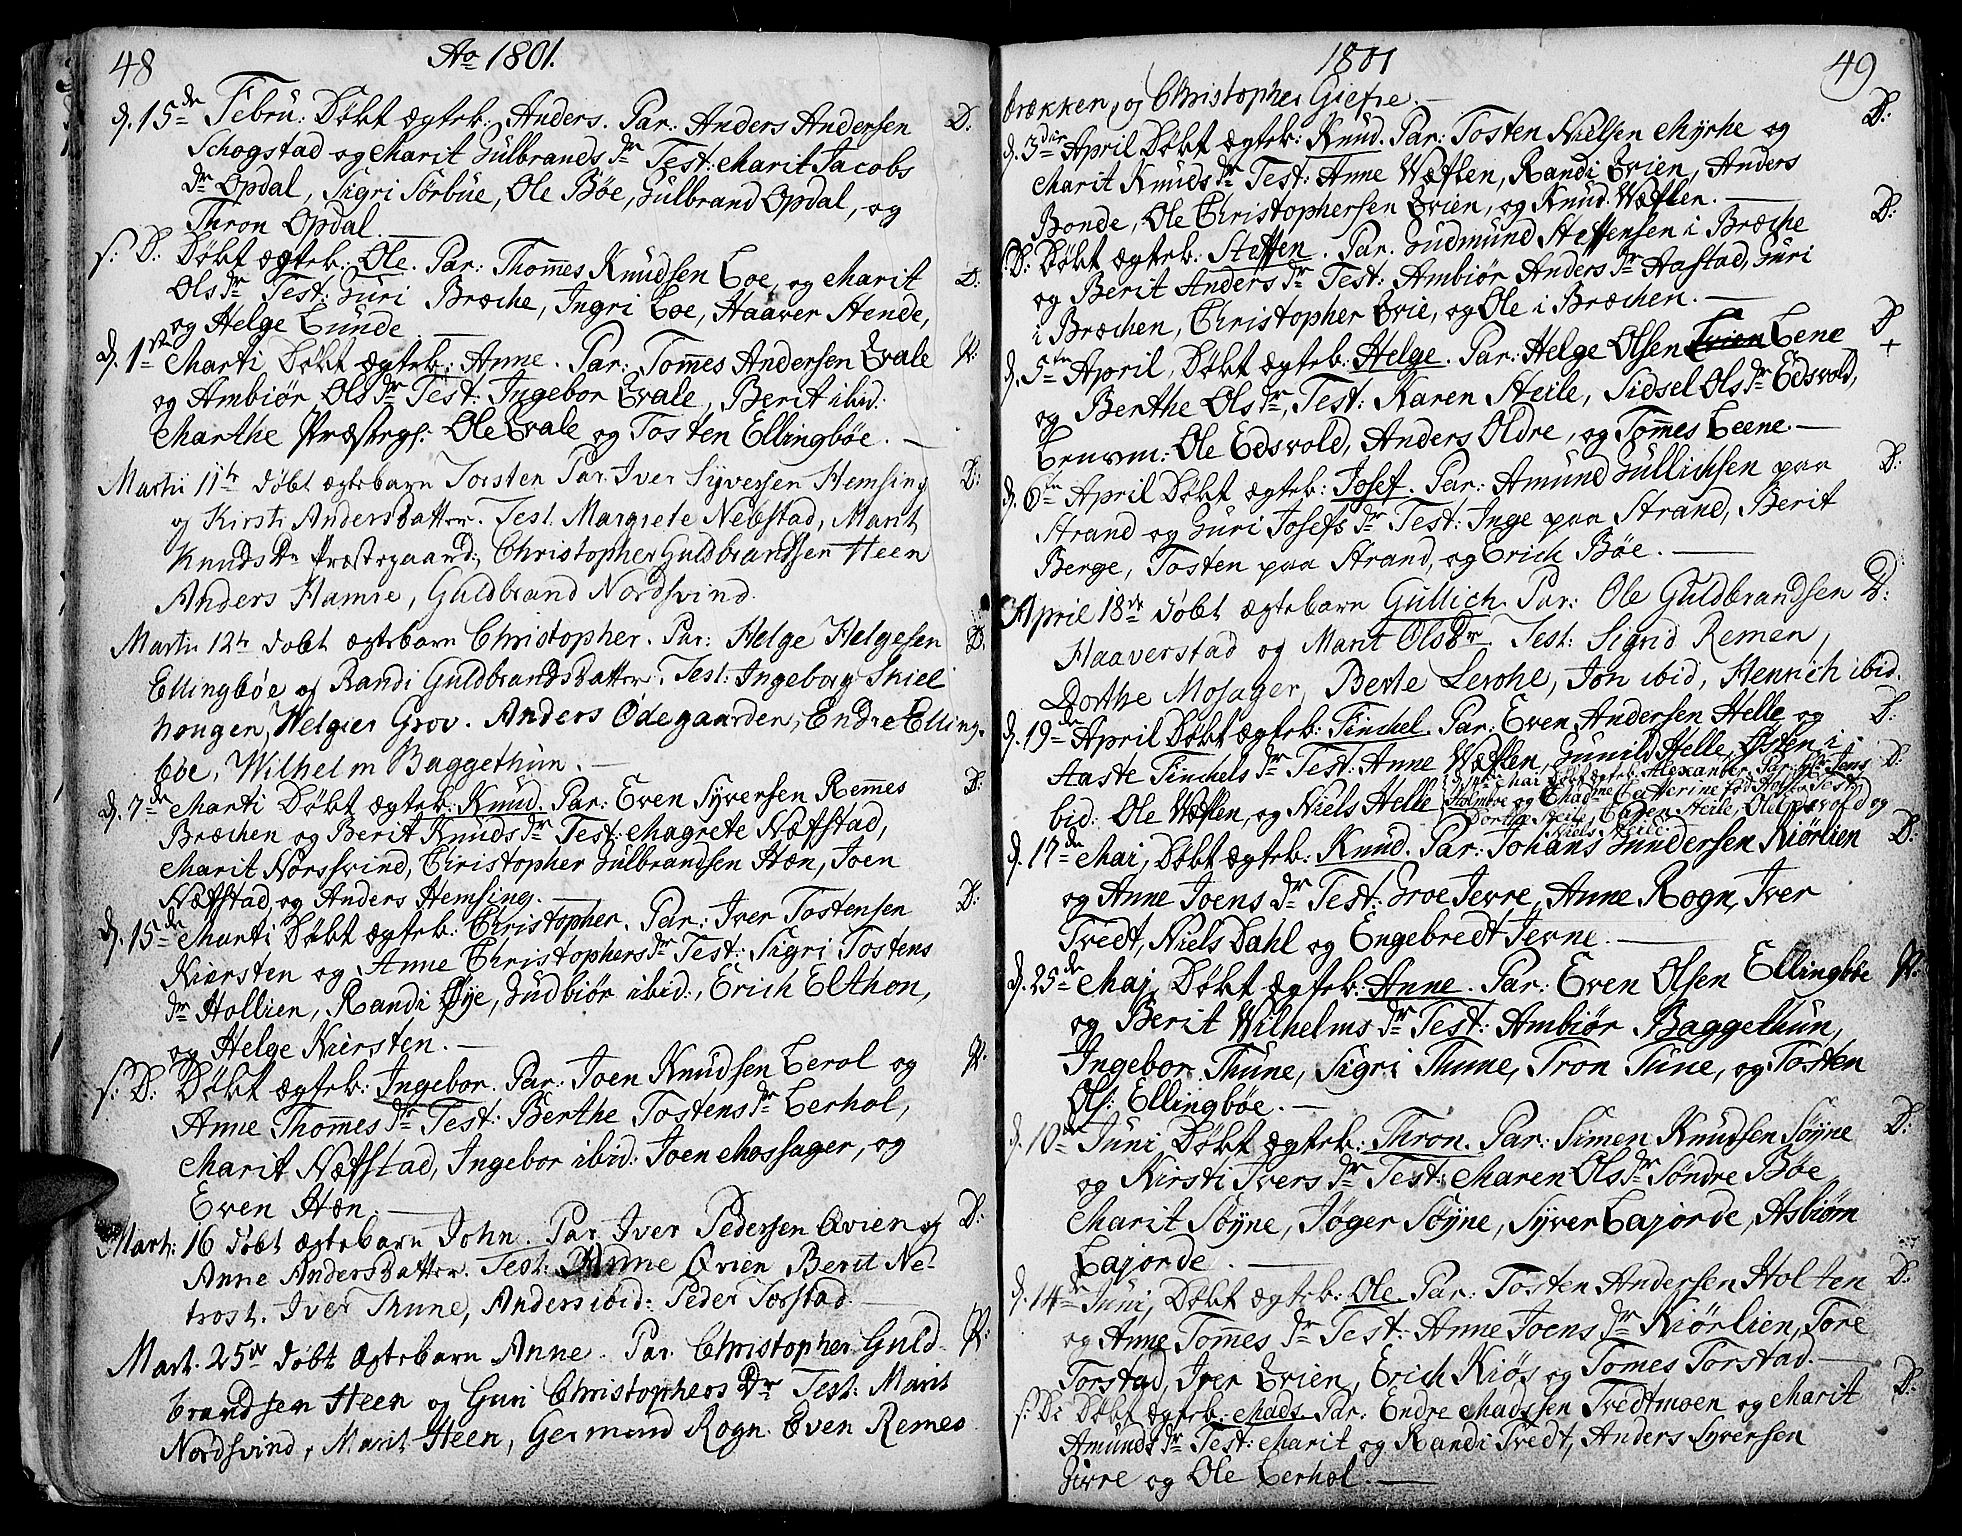 48
Ao 1801.
d. 15de Febru: Døbt ægteb: Anders. Par: Anders Andersen D:
Schogstad og Marit Gulbrands Dr Test: Marit Jacobs
Dr Opdal, Sigri Sørbue, Ole Bøe, Gulbrand Opdal, og
Thron Opdal.
s: D: Døbt ægteb: Ole. Par: Thomes Knudsen Loe, og Marit D:
Ols Dr Test: Guri Bræche, Ingri Loe, Haaver Hende,
og Helge Lunde.
d. 1st Marti Døbt ægteb: Anne. Par: Tomes Andersen Qvale P:
og Ambiør Ols Dr Test: Ingebor Qvale, Berit ibid:
Marthe Præstegs: Ole Qvale og Tosten Ellingbøe.
Martii 11te døbt ægtebarn Torsten Par. Iver Syversen Hemsing D:
og Kirsti Andersdatter. Test. Margrete Nebstad, Marit
Knuds Dr Præstegaard, Christopher Guldbrandsen Heen
Anders Hamre, Guldbrand Nordsvind.
Martii 12te døbt ægtebarn Christopher. Par: Helge Helgesen D.
Ellingbøe og Randi Guldbrandsdatter. Test: Ingeborg Skiel
hougen, Helgier Grov. Anders Ødegaarden, Endre Elling.
bøe, Wilhelm Baggethun.
d. 7de Marti Døbt ægteb: Knud. Par: Even Syversen Remes D:
Bræchen og Berit Knuds Dr Test: Magrete Næfstad,
Marit Norssvind, Christopher Gulbrandsen Hæn, Joen
Næfstad og Anders Hemsing.
d. 15de Marti Døbt ægteb: Christopher. Par: Iver Tostensen D:
Kiersten og Anne Christophers Dr Test: Sigri Tostens
Dr Hollien, Randi Øye, Gudbiør ibid:, Erich Elthon,
og Helge Kiersten.
s: D: Døbt ægteb: Ingebor. Par: Joen Knudsen Lerol og P:
Anne Thomes Dr Test: Berthe Tostens Dr Lerhol,
Marit Næfstad, Ingebor ibid: Joen Mossager, og
Even Hæn.
Mart: 16 døbt ægtebarn John. Par Iver Pedersen Qvien og D:
Anne Andersdatter. Test: Anne Qvien Berit Ne-
trost. Iver Thune, Anders ibid: Peder Torstad.
Mart. 25de døbt ægtebarn Anne. Par. Christopher Guld P:
brandsen Heen og Guri Christophers Dr Test: Marit
Nordsvind, Marit Heen, Germund Rogn. Even Remes
1801
49
brækken, og Christopher Giefre.
d. 3die April Døbt ægteb: Knud. Par: Tosten Nielsen Myrhe og D:
Marit Knuds Dr Test: Anne Wæflen, Randi Qvien, Anders
Bonde, Ole Christophersen Qvien, og Knud Wæflen.
s: D: Døbt ægteb: Steffen. Par. Gudmund Steffensen i Bræche D:
og Berit Anders Dr Test: Ambiør Anders Dr Aastad, Guri
i Bræchen, Christopher Qvie, og Ole i Bræchen.
d. 5te April, Døbt ægteb: Helge. Par: Helge Olsen Lene D +
og Berthe Ols Dr, Test: Karen Steile, Sidsel Ols Dr Edsvold,
Ole Edsvold, Anders Oldre, og Tomes Leene.
d. 6te April Døbt ægteb: Josef. Par: Amund Gullichsen paa D:
Strand og Guri Josefs Dr Test: Inge paa Strand, Berit
Berge, Tosten paa Strand, og Erich Bøe.
April 18de døbt ægtebarn Gullich. Par: Ole Guldbrandsen D:
Haaverstad og Marit Ols Dr Test: Sigrid Remen,
Dorthe Mosager, Berte Lerohe, Jon ibid, Henrich ibid.
d. 19de April Døbt ægteb: Finchel. Par: Even Andersen Helle og D:
Aaste Finchels Dr Test: Anne Wæflen, Gunild Helle, Østen i-
bid: Ole Wæflen, og Niels Helle
d. 14de Mai Døbt ægteb: Alexander Par: Hr Jens D:
Holmboe og Madme Catherine fød Holst Test:
Dorthe Steile, Caren Steile, Ole Edsvold og
Niels Steile.
d. 17de Mai, Døbt ægteb: Knud. Par: Johans Gundersen Kiørlien D:
og Anne Joens Dr Test: Groe Jevre, Anne Rogn, Iver
Tvedt, Niels Dahl og Engebredt Jevne.
d. 25de Maj, Døbt ægteb: Anne. Par: Even Olsen Ellingbøe P:
og Berit Wilhelms Dr Test: Ambiør Baggethun,
Ingebor Thune, Sigri Thune, Tron Tune, og Tosten
Ols: Ellingbøe.
d. 10de Juni, Døbt ægteb: Thron. Par: Simen Knudsen Søyne D:
og Kirsti Ivers Dr Test: Maren Ols Dr Søndre Bøe
Marit Søyne, Jøger Søyne, Syver Lajorde, Asbiørn
Lajorde.
d. 14de Juni, Døbt ægteb: Ole. Par: Tosten Andersen Holten D:
og Anne Tomes Dr Test: Anne Joens Dr Kiørlien, Tore
Torstad, Iver Qvien, Erich Kiøs og Tomes Torstad.
s: D: Døbt ægteb: Mads. Par: Endre Madssen Tvedtmoen og Marit D:
Amunds Dr Test: Marit og Randi Tvedt, Anders Syversen
Jevre og Ole Lerhol.